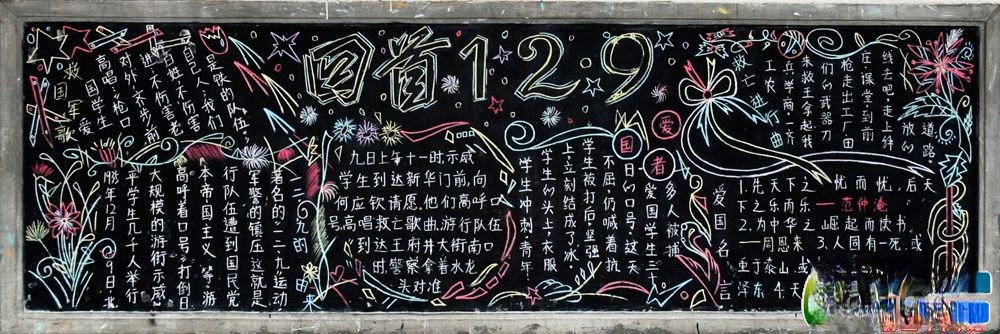 回首12.9
救国军歌
高唱:枪口
对外,齐步前
进!不伤害老
百姓,不伤害
自己人!我们
是铁的队伍,
1935年12月9日,北
平学生几千人举行
大规模的游街示威
高呼着口号:"打倒日
本帝国主义"等,游
行队伍遭到国民党
军警的镇压,这就是
著名的一二九运动
九的由来
九日上午十一时示威
学生到达新华门前,向
何应钦请愿,他们高呼口
号,高唱救亡歌曲,游行队伍
到达王府井大街南口
时,警察拿着水龙
头对准
学生冲刺,青年
学生们头上、衣服
上立刻结成了冰.
学生被打后,坚强
不屈,仍喊着抗
日的口号,这天
爱国学生三十
多人被捕
爱国者
救亡进行曲
工农
兵学商,一齐
来救亡,拿起我
们的武器刀
枪,走出工厂田
庄课堂,到前
线去吧,走上解
放的
道路
爱国名言
1.先天下之忧而忧,后天
下之乐而乐 —范仲淹
2.为中华之崛起而读书.
—周恩来 3.人固有一死,或
重于泰山,或
泽东 4.天